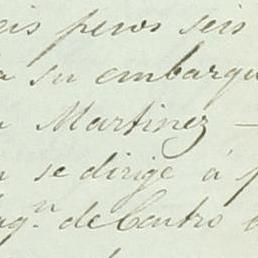 eis pesos seis
a su embarqu
n Martinez —
n se dirige á p
aqn. de Castro